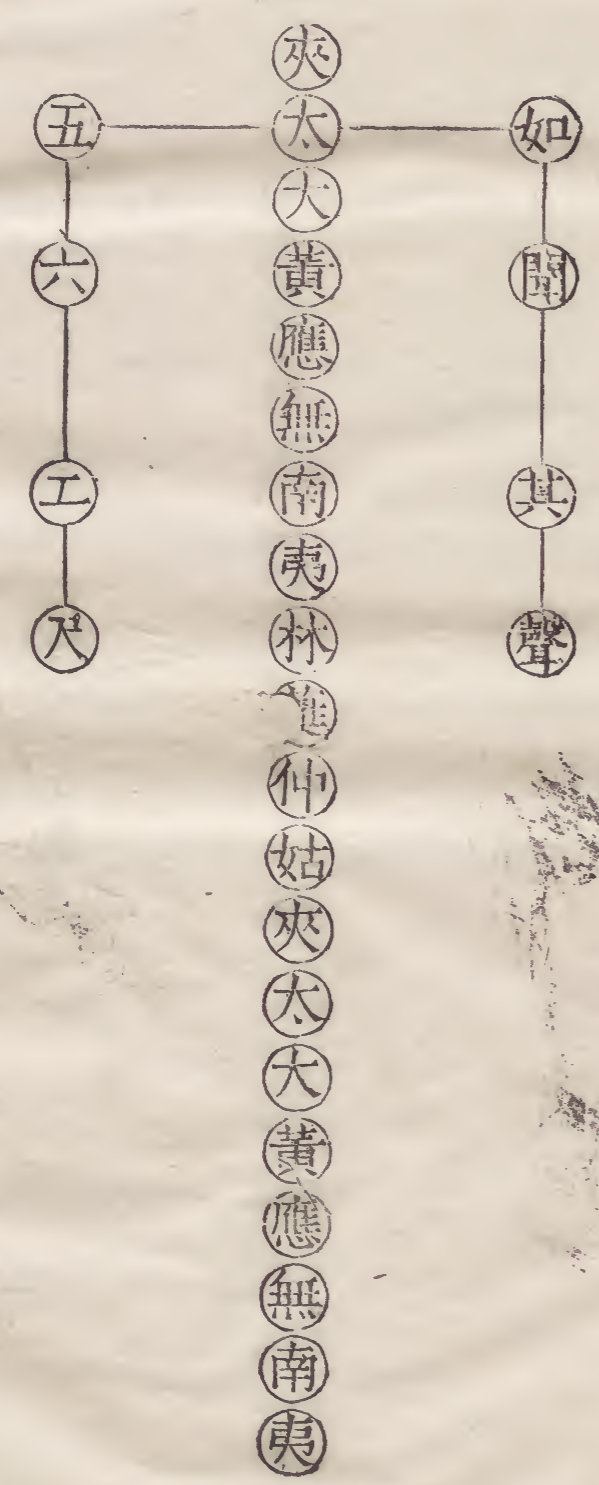 如聞其聲
夾太大黃應無南夷林蕤仲姑夾太大黃應無南夷
五六工尺